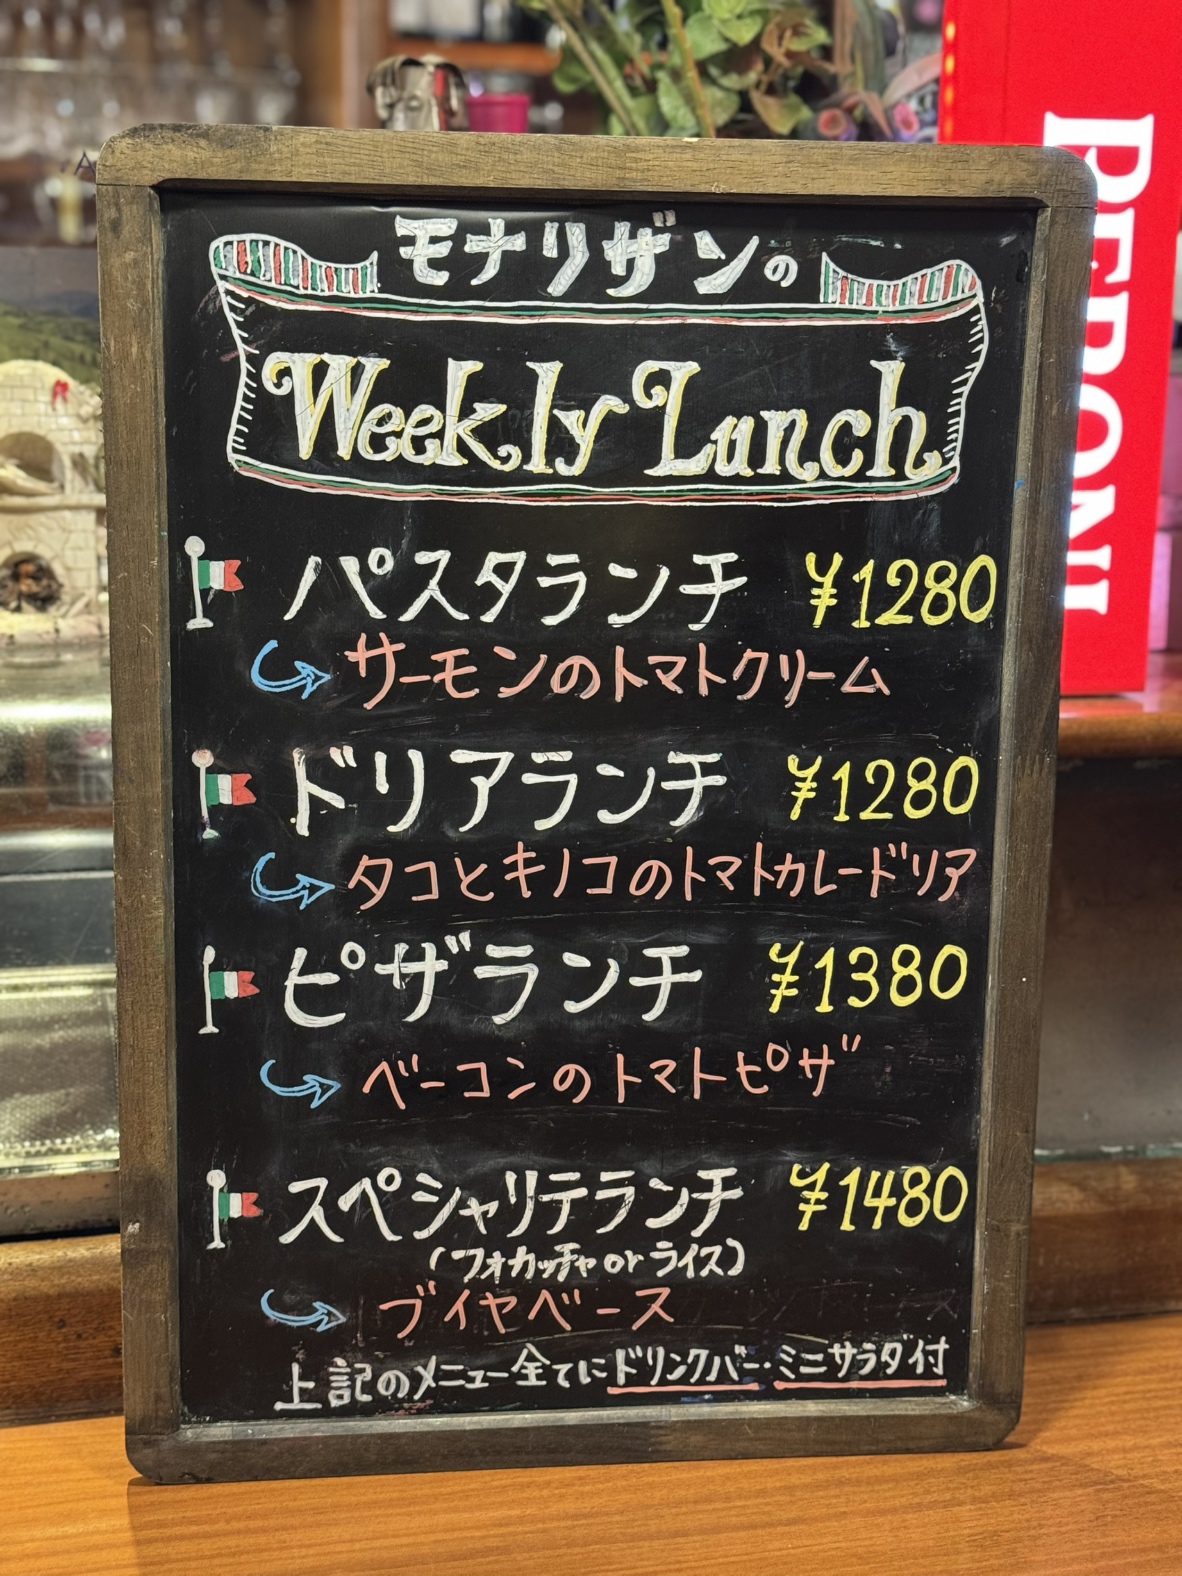 モナリザンの
Weekly Lunch
パスタランチ ¥1280
サーモンのトマトクリーム
ドリアランチ ¥1280
タコとキノコのトマトカレードリア
ピザランチ ¥1380
ベーコンのトマトピザ
スペシャリテランチ ¥1480
(フォカッチャ or ライス)
ブイヤベース
上記のメニュー全てにドリンクバー・ミニサラダ付
PERONI